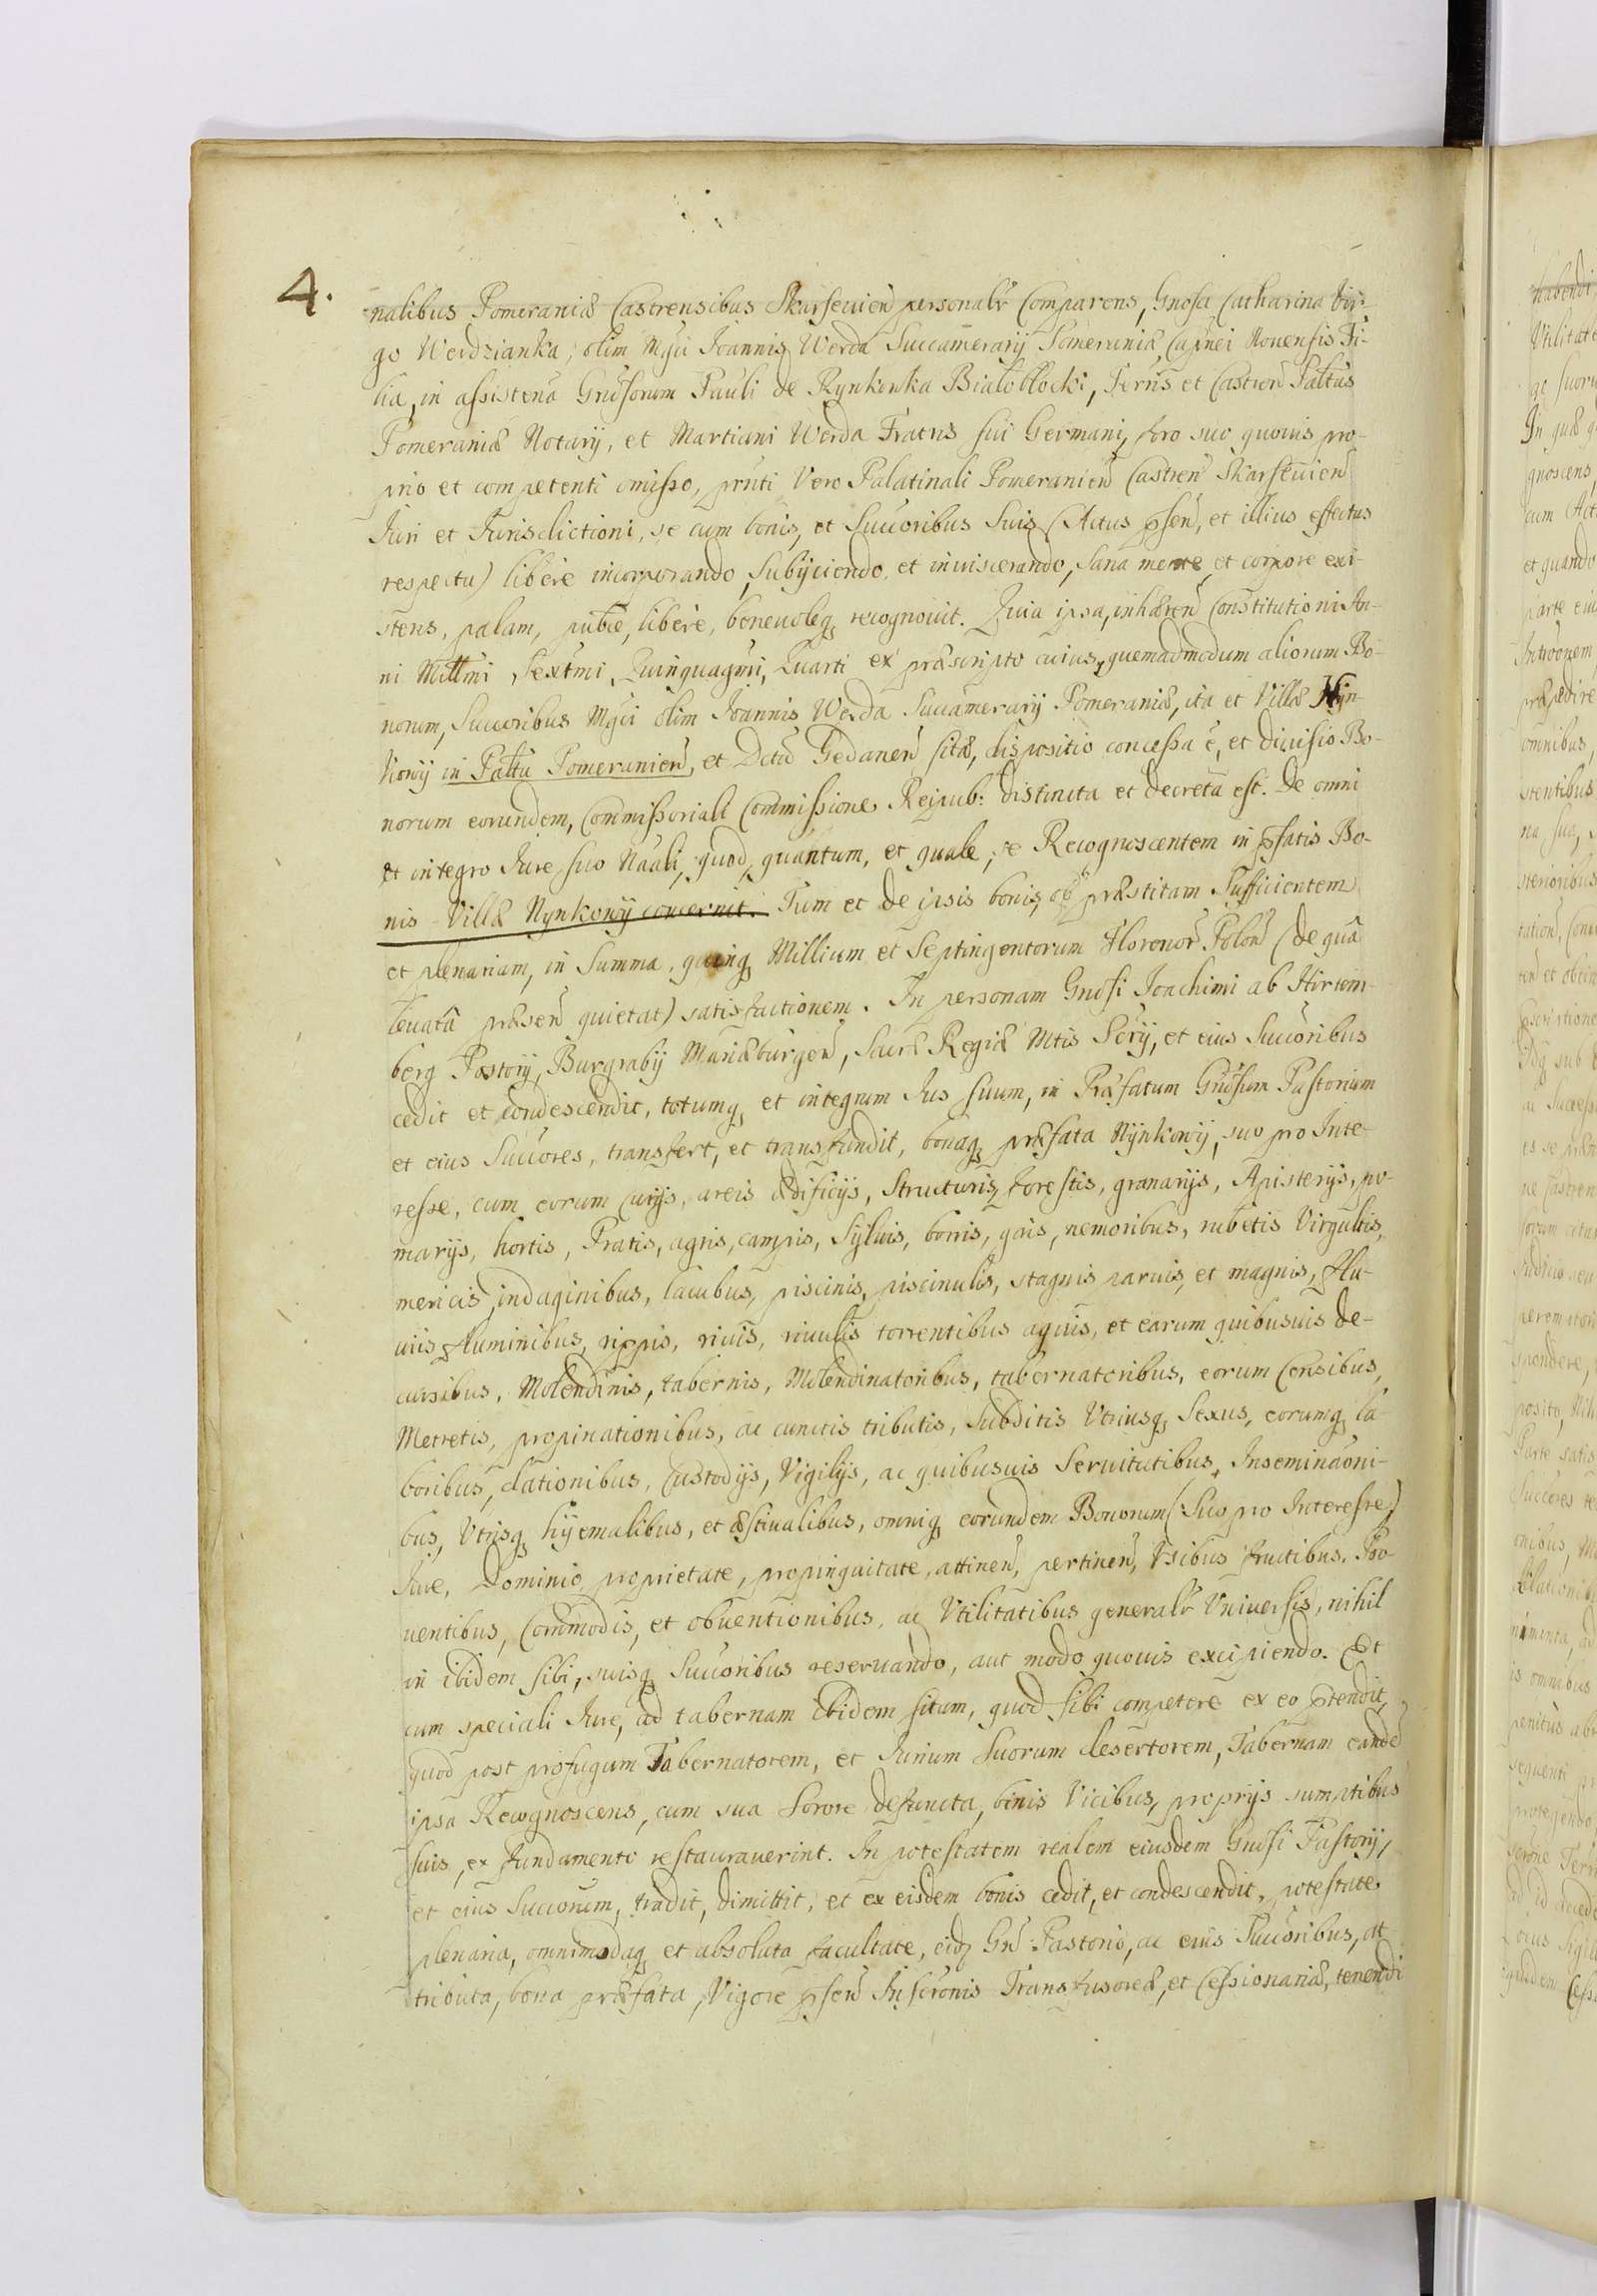 4.
nalibus Pomeraniæ Castrensibus Skarseuien̄ personalr̄ Comparens, Gnosa Catharina Vir-
go Werdzianka, olim Mgci Joannis Werda Succamerarij Pomeraniæ Capnei Nouensis Fi-
lia, in assistena Gnosorum Pauli de Rynkowka Białobłocki, Terris et Castren Paltus
Pomeraniæ Notarij, et Martiani Werda Fratris sui Germani, foro suo quouis pro-
prio et competenti omisso, pr̄nti Vero Palatinali Pomeranien̄ Castren̄ Skarseuien̄
Juri et Jurisdictioni, se cum bonis, et Succoribus Suis (Actus p̄sen̄, et illius effectus
respectu) libere incorporando, Subijciendo, et inuiscerando, Sana mente, et corpore exi-
stens, palam, pub̄ce, libere, beneuoleq, recognouit. Quia ipsa, inhæren̄ Constitutioni An-
ni Millm̄i, Sextm̄i, Quinquagm̄i, Quarti ex præscripto cuius, quemadmodum aliorum Bo-
norum, Succoribus Mgci olim Joannis Werda Succamerarij Pomeraniæ, ita et Villæ Nyn-
kowij in Paltu Pomeranien̄, et Dctu Gedanen̄ sitæ, dispositio concessa ē, et diuisio Bo-
norum eorundem, Commissoriali Commissione Reipub: distincta et decreta est. De omni
et integro Jure suo Naāli, quod, quantum, et quale, se Recognoscentem in p̄fatis Bo-
nis Villæ Nynkowij concernit. Tum et de ipsis bonis, ob præstitam Sufficientem
et plenariam, in Summa, quinq, Millium et Septingentorum Florenor̄ Polon̄ (de qua
leuata præsen̄ quietat) satisfactionem. In personam Gnosi Joachimi ab Hirtem-
berg Pastorij, Burgrabij Mariæburgen̄, Sacræ Regiæ Mtis Scrij, et eius Succoribus
cedit et condescendit, totumq, et integrum Jus suum, in Præfatum Gnosum Pastorium
et eius Succores, transfert, et transfundit, bonaq, præfata Nynkowij, suo pro Inte-
resse, cum eorum Curijs, areis ædificijs, Structuris, forestis, granarijs, Apisterijs, po-
marijs, hortis, Pratis, agris, campis, Syluis, borris, gais, nemoribus, rubetis Virgultis,
mericis, indaginibus, lacubus, piscinis, piscinulis, stagnis paruis, et magnis, Flu-
uiis, fluminibus, rippis, riuis, riuulis torrentibus aquis, et earum quibusuis de-
cursibus, Molendinis, tabernis, Molendinatoribus, tabernatoribus, eorum Censibus,
Metretis, propinationibus, ac cunctis tributis, Subditis Vtriusq, Sexus, eorumq, la-
boribus, dationibus, Custodijs, Vigilijs, ac quibusuis Seruitutibus, Inseminaōni-
bus, Vtrisq, hyemalibus, et æstiualibus, omniq, eorundem Bonorum (Suo pro Interesse)
Jure, Dominio, proprietate, propinquitate, attinen̄, pertinen̄, Vsibus fructibus, Pro-
uentibus, Commodis, et obuentionibus, ac Vtilitatibus generalr̄ Vniuersis, nihil
in ibidem sibi, suisq, Succoribus reseruando, aut modo quouis excipiendo. Et
cum speciali Jure, ad tabernam Ibidem sitam, quod sibi competere ex eo p̄tendit,
quod post profugum Tabernatorem, et Jurium Suorum desertorem, Tabernam eandē
ipsa Recognoscens, cum sua Sorore defuncta, binis Vicibus, proprijs sumptibus
suis, ex fundamento restaurauerint. In potestatem realem eiusdem Gnosi Pastorij,
et eius Succorum, tradit, dimittit, et ex eisdem bonis cedit, et condescendit, potestate
plenaria, omnimodaq, et absoluta facultate, eidē Gn̄ Pastorio, ac eius Succoribus, at-
tributa, bona præfata, Vigore p̄sen̄ Inscr̄onis Transfusoreæ, et Cessionariæ, tenendi